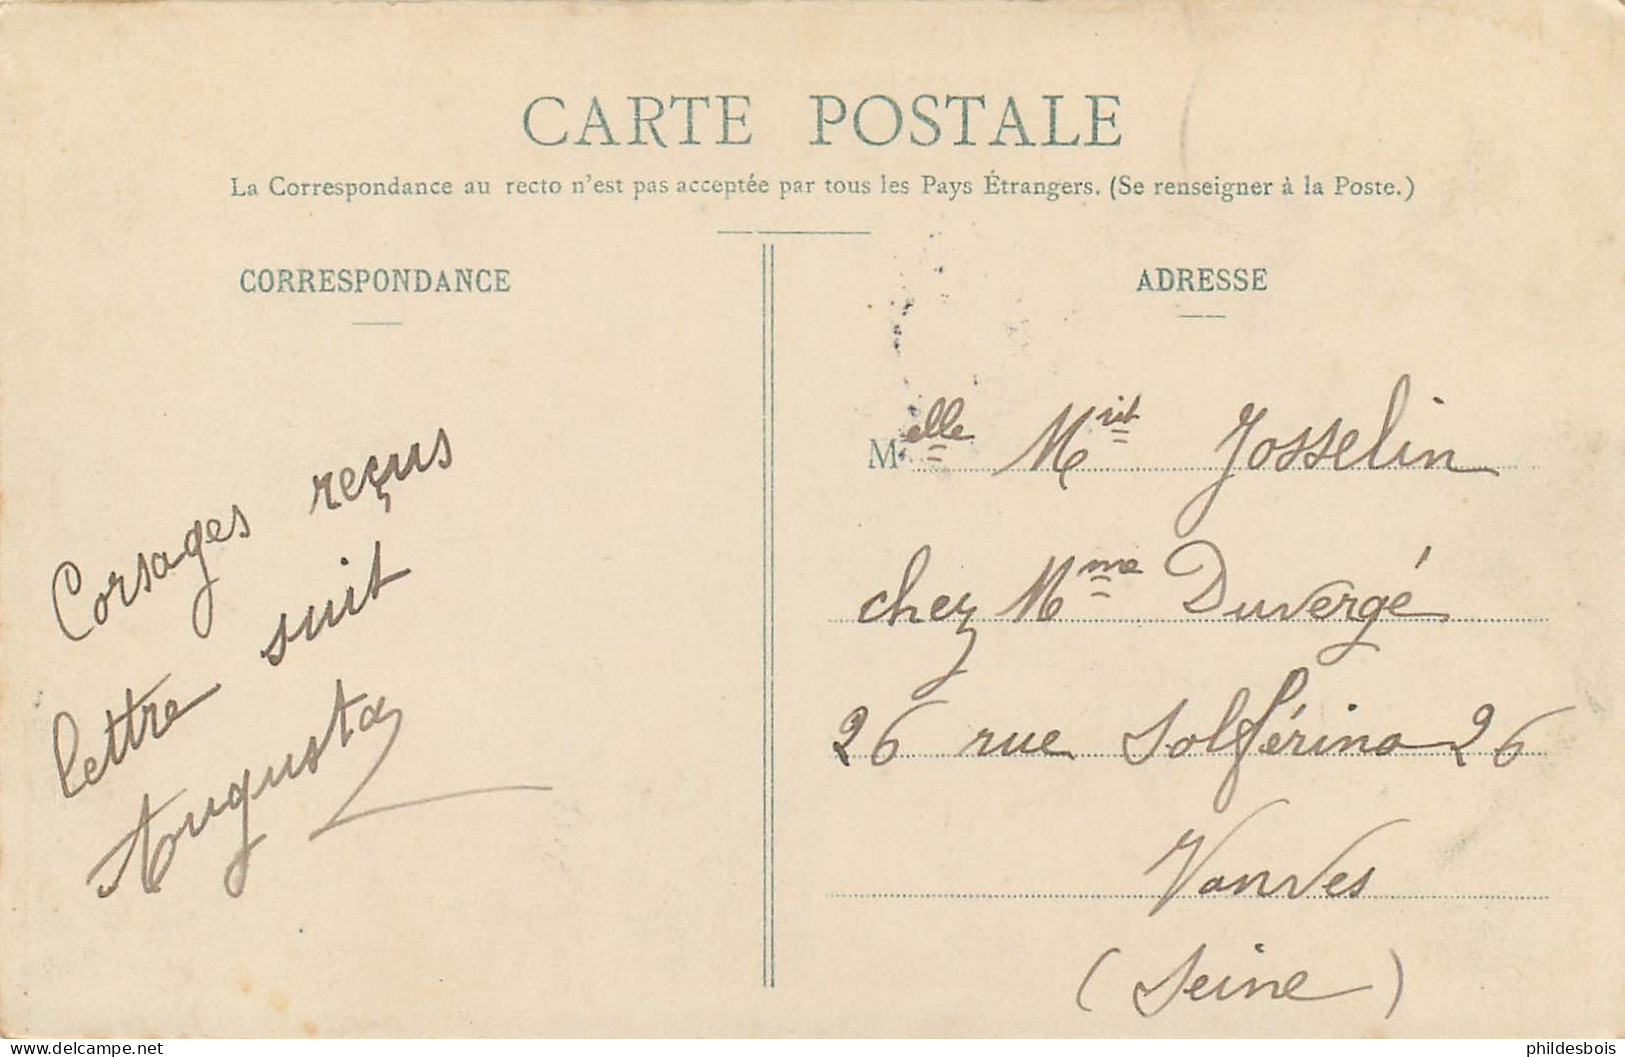 CARTE POSTALE
La Correspondance au recto n'est pas acceptée par tous les Pays Étrangers. (Se renseigner à la Poste.)
CORRESPONDANCE
Corsages reçus
lettre suit
Augusta
ADRESSE
Melle Mrit Josselin
chez Mme Duvergé
26 rue Solférino 26
Vanves
(Seine)
delcampe.net
phildesbois